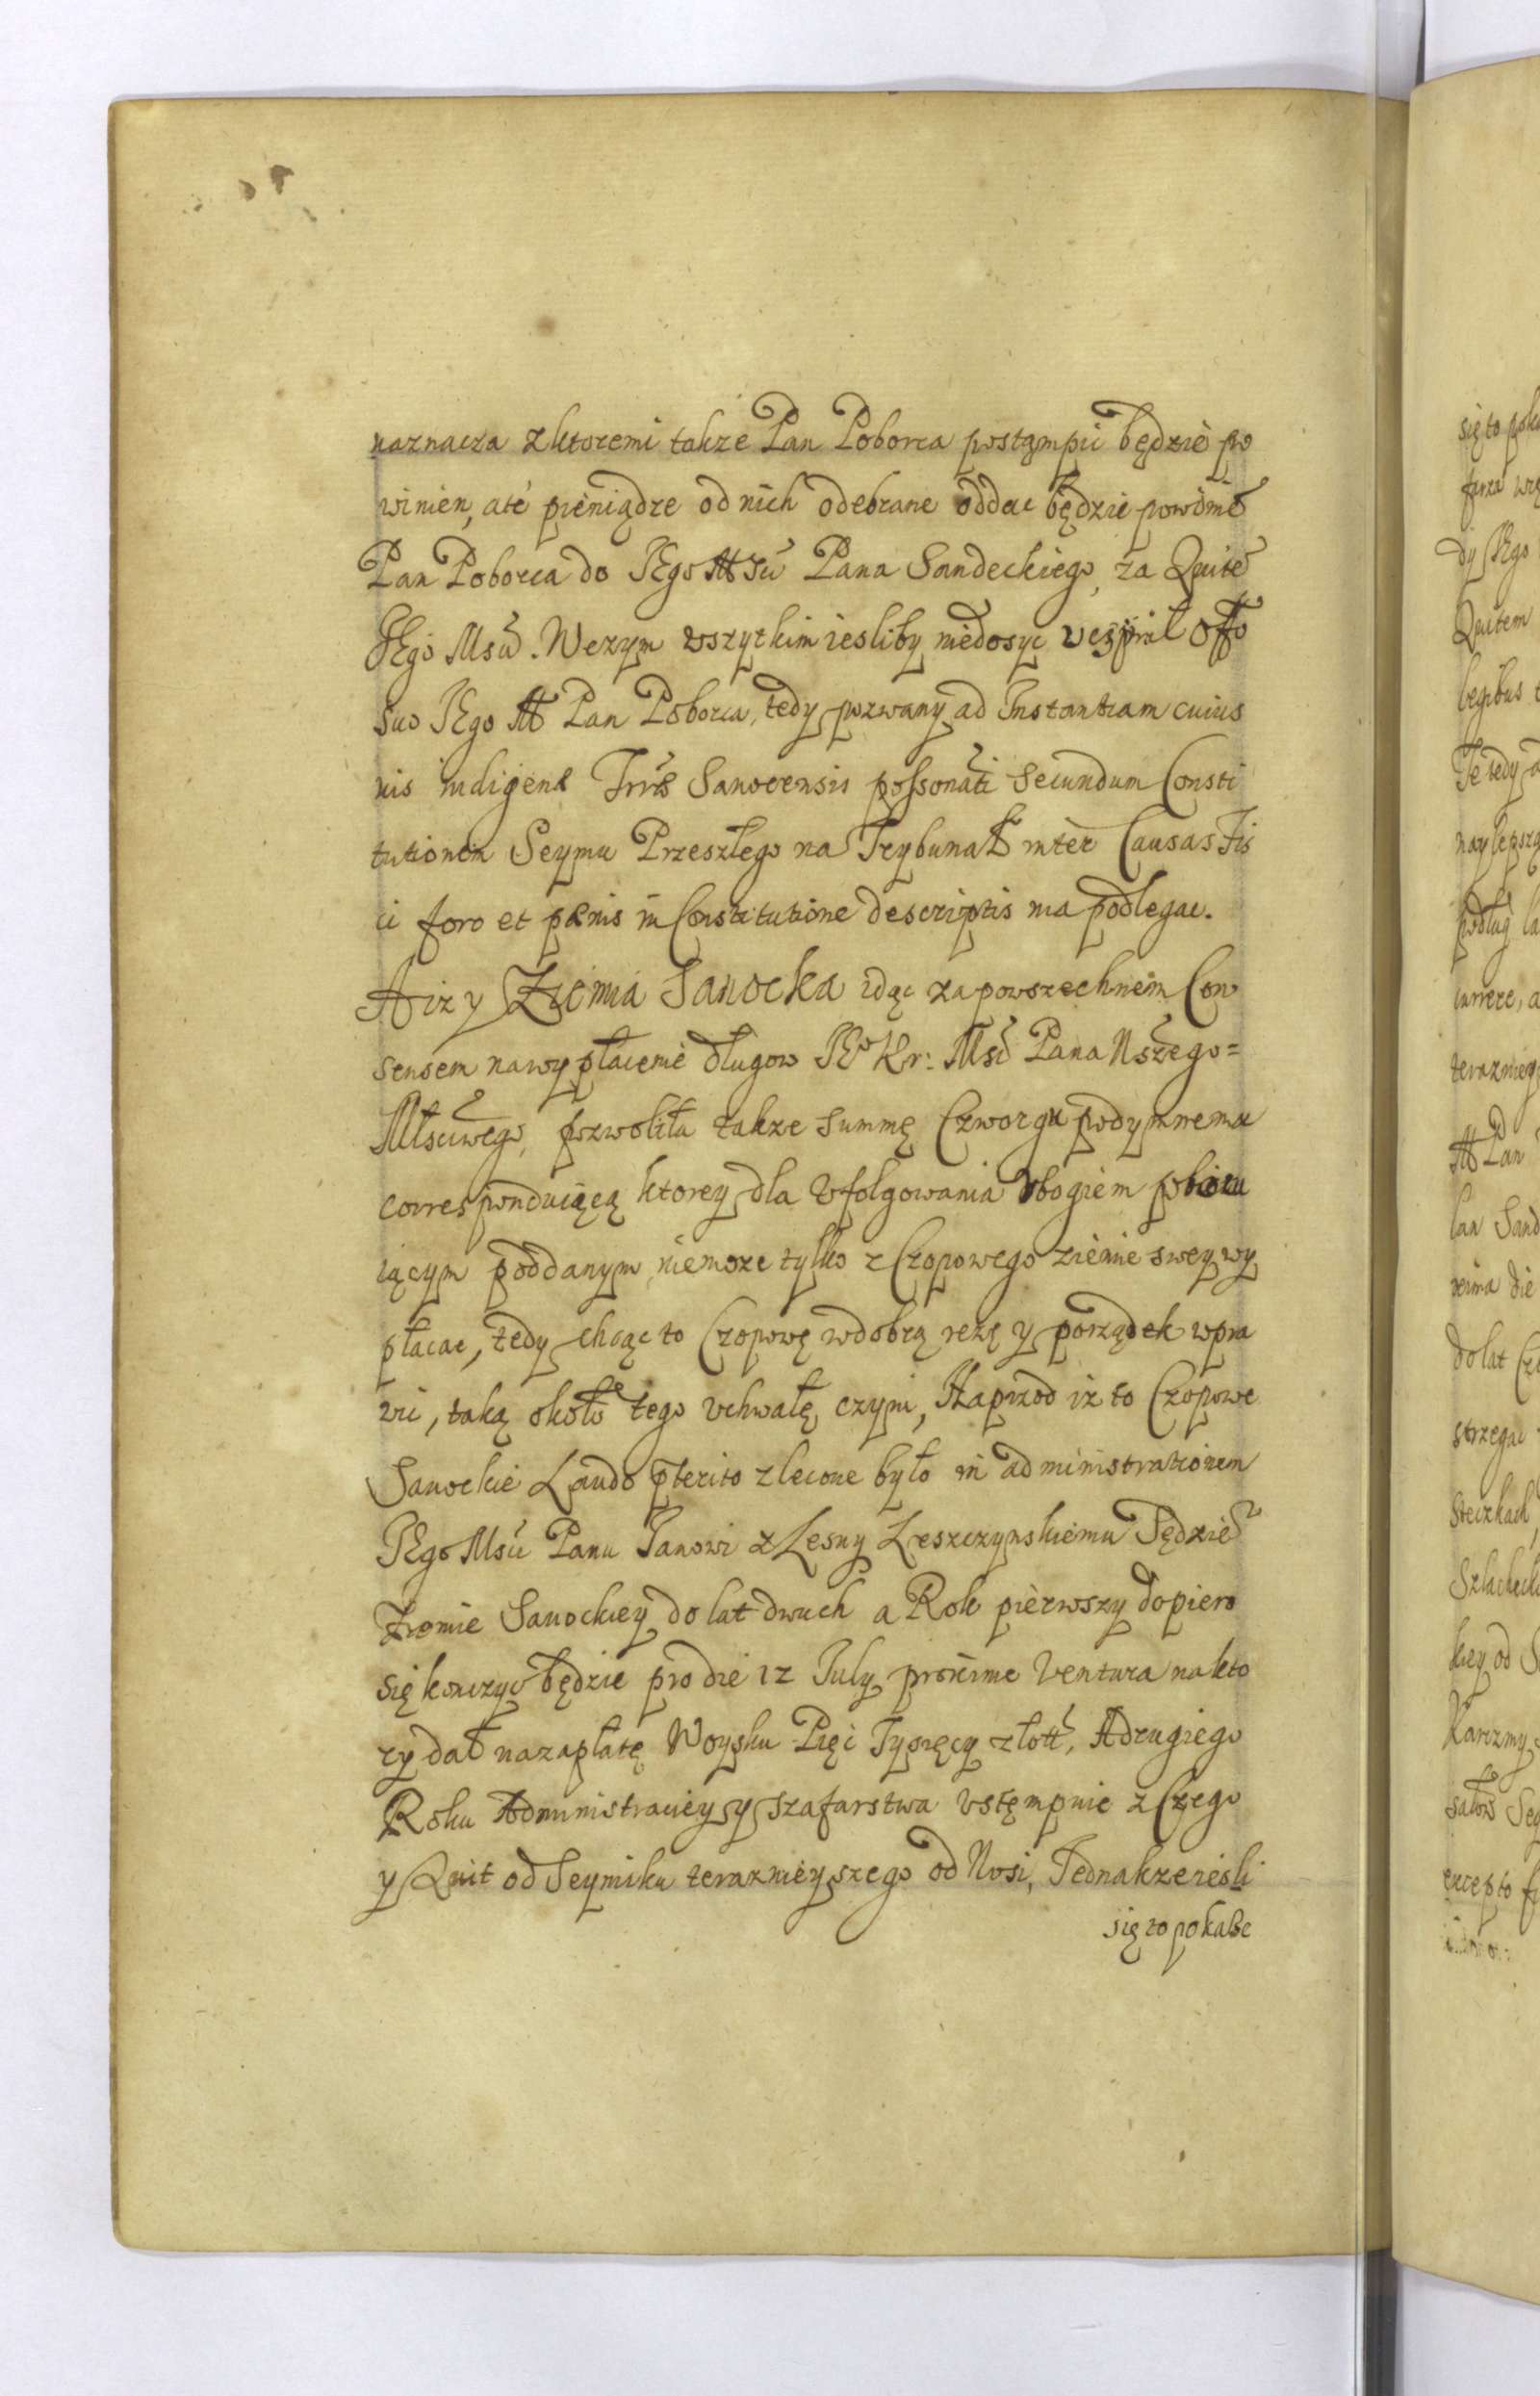 naznacza zktoremi takze Pan Poborca postąmpić będzie po
winien, até pieniądze od nich odebrane oddac będzie powinie
Pan Poborca do JEgo Mści Pana Sandeckiego, za Quité
JEgo Mści. Wczym wszytkim iesliby niedosyc uczynił offo
suo JEgo M Pan Poborca, tedy pozwany ad Instantiam cuius
nis indigenæ Trræ Sanocensis possonati Secundum Consti
tutionem Seymu Przeszłego na Trybunał inter Causas Fis
ci foro et pænis in Constitutione descriptis ma podlegac.
A iz y Ziemia Sanocka idąc za powszechnem Con
sensem nawypłacenie długow JEo Kr: Mści Pana Nszego=
Młsciwego, pozwoliła takze summę Czworgu podymnemu
correspondуiącą ktorey dla Ufolgowania Vbogiem
iącym poddanym niemoze tylko z Czopowego ziemie swey wy
płacac, tedy chcąc to Czopowę wdobrą rezę y porządek wpra
wic, taką około tego vchwałę czyni, Naprzod iz to Czopowe
Sanockie Laudo pterito zlecone było in administrationem
JEgo Mści Panu Janowi z Lesny Leszczynskiemu Sędzie
Ziemie Sanockiey do lat dwuch a Rok pierwszy dopiero
się konczyc będzie pro die 12 July proxime Ventura nakto
ry dał nazapłatę Woysku Pięc Tysięcy złott, A drugiego
Roku Administraciey y szafarstwa vstęmpuie z Czego
y Quit od Seymiku terazniéyszego od Nosi, Jednakze iesli
się to pokaże